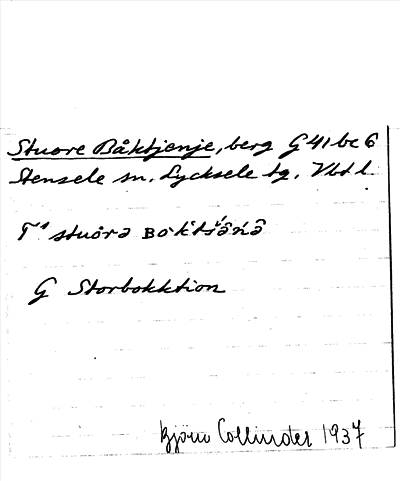 Stuore Båktjenje, berg G 41 bc 6
Stensele sn. Lycksele tg. Vbt l.
T¹ stuȯrə
G Storbokktion
Björn Collinder 1937